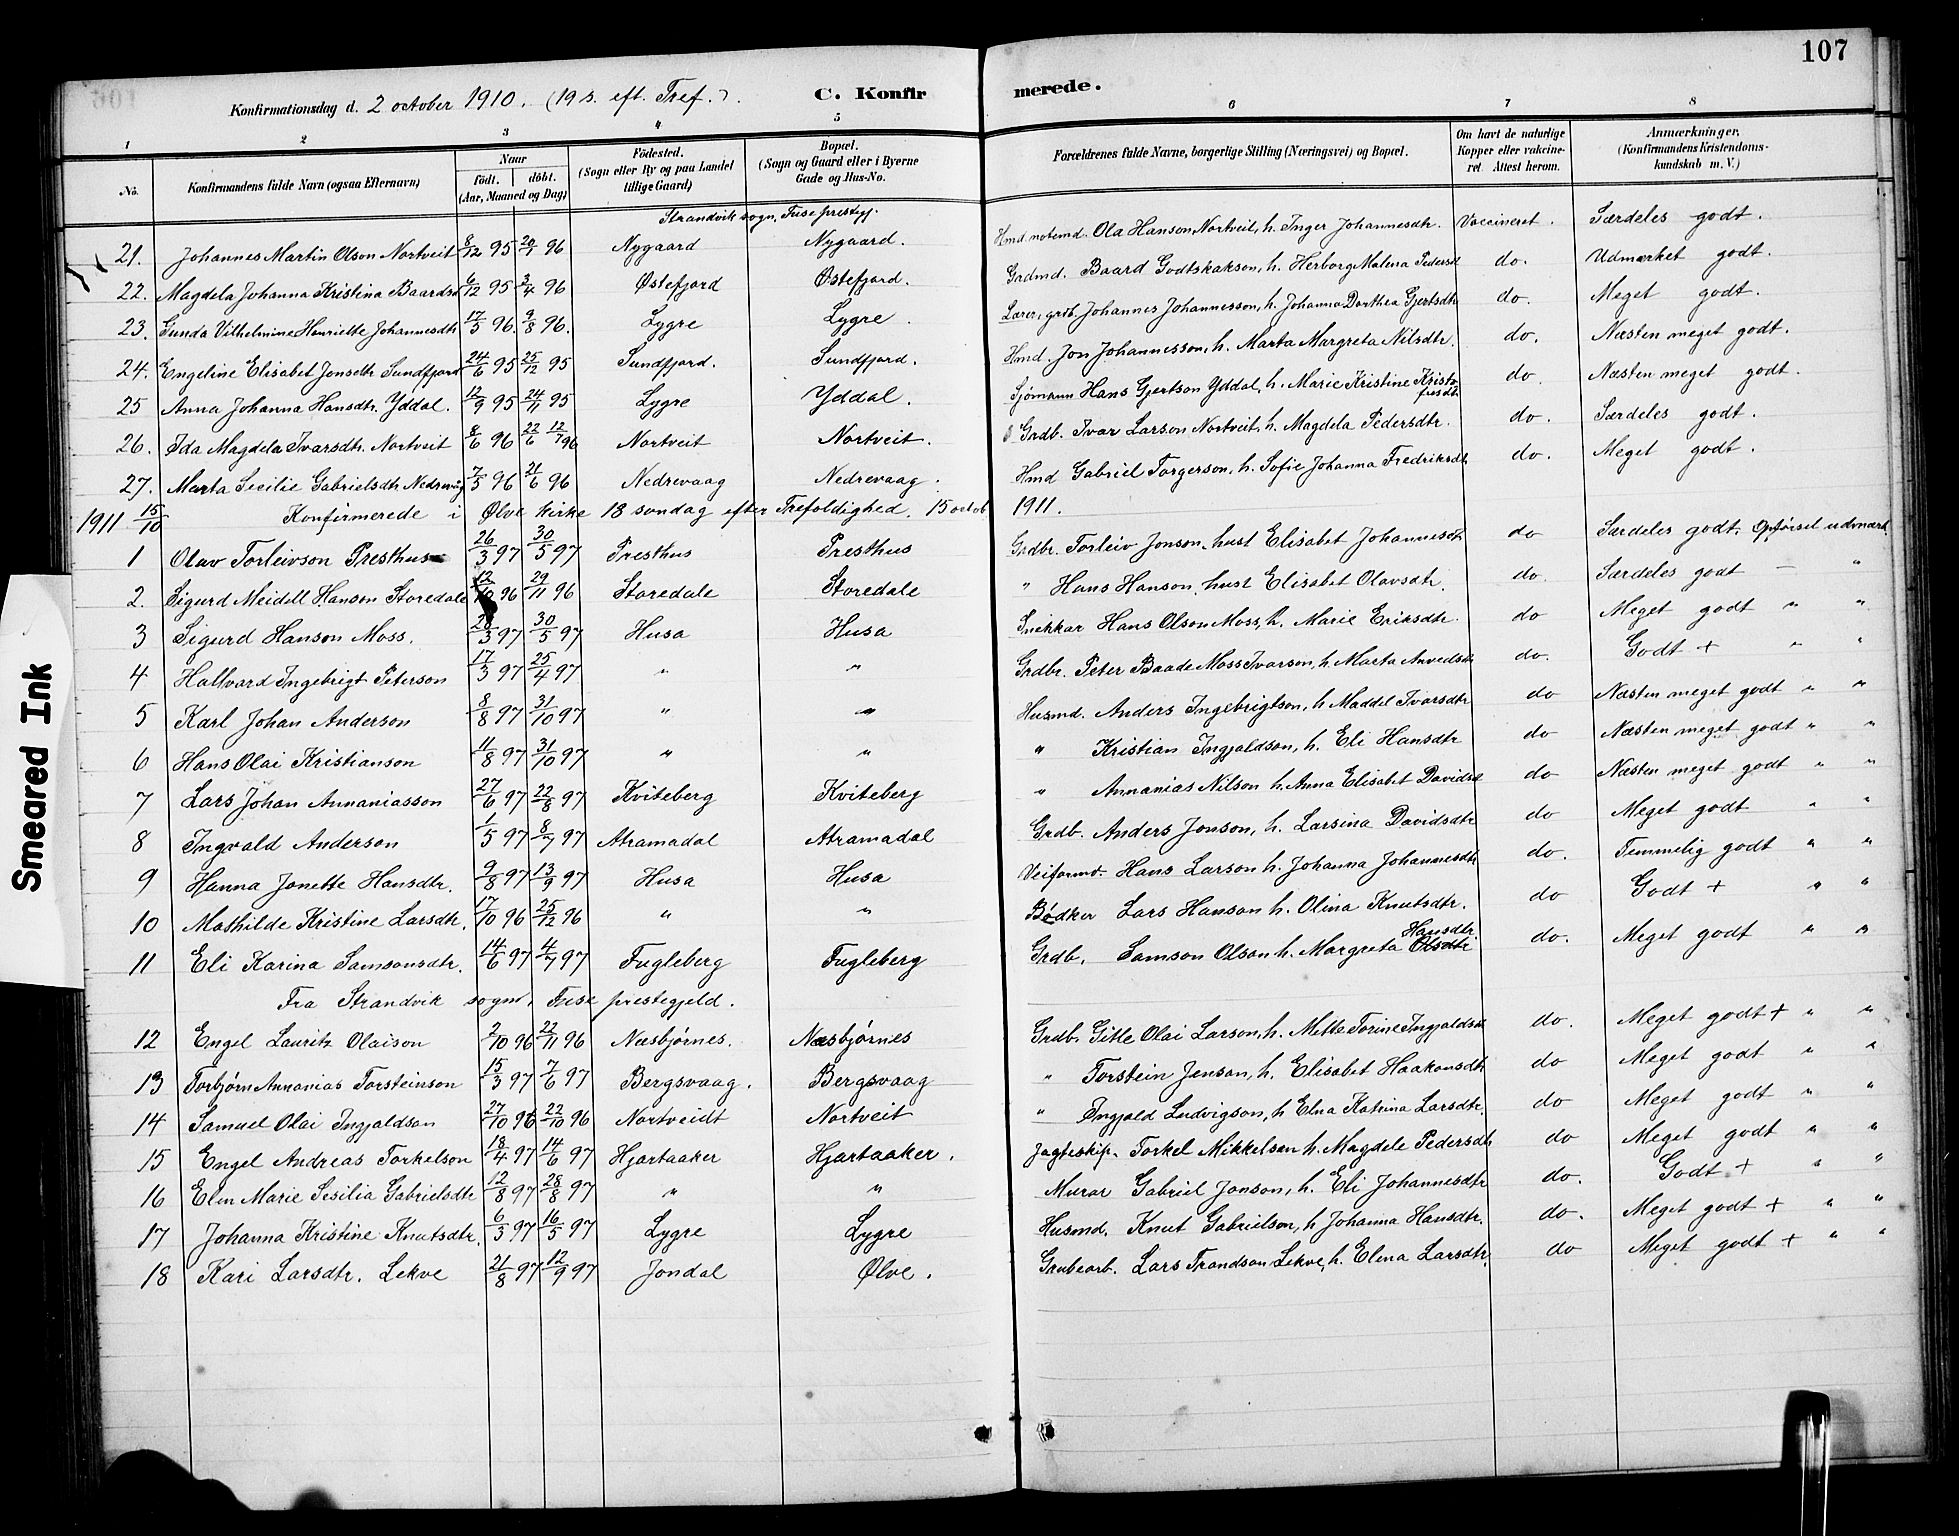 107
Konfirmationsdag d. 2 october 1910. (19 s. eft. Tref.). C. Konfirmerede.
1 2 3 4 5 6 7 8
No. Konfirmandens fulde Navn (ogsaa Efternavn) Naar födt. döbt. (Aar, Maaned og Dag) Födested. (Sogn eller By og paa Landet tillige Gaard) Bopæl. (Sogn og Gaard eller i Byerne Gade og Hus-No. Forældrenes fulde Navne, borgerlige Stilling (Næringsvei) og Bopæl. Om havt de naturlige Kopper eller vakcineret Attest herom. Anmærkninger. (Konfirmandens Kristendomskundskab m. V.)
Strandvik sogn, Fuse prestgj.
21. Johannes Martin Olson Nortveit 8/12 95 20/1 96 Nygaard Nygaard. Hmd notemd. Ola Hanson Nortveit, h. Inger Johannesdtr. Vaccineret. Særdeles godt.
22. Magdela Johanna Kristina Baardsd 6/12 95 3/4 96 Østefjord Østefjord. Grdmd. Baard Godtskakson, h. Herborg Malena Pedersd do. Udmærket godt.
23. Gunda Vilhelmine Henriette Johannesdtr 17/5 96. 9/8 96. Lygre Lygre. Lærer, grdb. Johannes Johannesson, h. Johanna Dorthea Gjertsdtr do. Meget godt.
24. Engeline Elisabet Jonsdtr Sundfjord 24/6 95 25/12 95 Sundfjord. Sundfjord. Hmd. Jon Johannesson, h. Marta Margreta Nilsdtr. do. Næsten meget godt.
25 Anna Johanna Hansdtr. Yddal. 12/9 95 24/11 95 Lygre Yddal. Sjømann Hans Gjertson Yddal, h. Marie Kristine Kristofersdt. do. Næsten meget godt.
26. Ida Magdela Ivarsdtr. Nortveit 8/6 96 22/6 12/7 96 Nortveit Nortveit. Grdb. Ivar Larson Nortveit, h. Magdela Pedersdtr. do. Særdeles godt.
27. Marta Secilie Gabrielsdtr Nedrevåg 7/5 96 21/6 96 Nedrevaag Nedrevaag. Hmd Gabriel Torgerson, h. Sofie Johanna Fredriksdt do. Meget godt.
1911 15/10 Konfirmerede i Ølve kirke 18 søndag efter Trefoldighed. 15 octob 1911.
1 Olav Torleivson Presthus 26/3 97 30/5 97 Presthus Presthus Grdbr. Torleiv Jonson, hust Elisabet Johannesdt do Særdeles godt. Opførsel udmærk.
2. Sigurd Meidell Hanson Storedale 12/10 96 29/11 96 Storedale Storedale " Hans Hanson, hust Elisabet Olavsdtr. do. Særdeles godt — "
3 Sigurd Hanson Moss. 28/3 97 30/5 97 Husa Husa Snekkar Hans Olson Moss, h. Marie Eriksdtr. do Meget godt " "
4 Hallvard Ingebrigt Peterson 17/3 97 25/4 97 " " Grdbr. Peter Baade Moss Ivarson, h. Marta Arvedsdt do. Godt + " "
5 Karl Johan Anderson 8/8 97 31/10 97 " " Husmd. Anders Ingebrigtson, h Maddel Ivarsdtr do Næsten meget godt " "
6 Hans Olai Kristianson 11/8 97 31/10 97 " " " Kristian Ingjaldson, h. Eli Hansdtr do Næsten meget godt " "
7 Lars Johan Annaniasson 27/6 97 22/8 97 Kviteberg Kviteberg " Annanias Nilson h. Anna Elisabet Davidsd do Næsten meget godt " "
8 Ingvald Anderson 1/5 97 8/7 97 Atramadal Atramadal Grdb. Anders Jonson, h. Larsina Davidsdtr do Meget godt " "
9 Hanna Jonette Hansdtr. 9/8 97 13/9 97 Husa Husa Veiformd. Hans Larson h. Johanna Johannesdtr do. Temmelig godt " "
10 Mathilde Kristine Larsdtr. 17/10 96 25/12 96 " " Bødker Lars Hanson h. Olina Knutsdtr. do Godt + " "
11 Eli Karina Samsonsdtr. 14/6 97 4/7 97 Fugleberg Fugleberg Grdb. Samson Olson h. Margreta Olsdtr Hansdtr. do. Meget godt " "
Fra Strandvik sogn, Fuse prestegjeld.
12 Engel Lauritz Olaison 2/10 96 22/11 96 Næsbjørnes. Næsbjørnes Grdb. Gitle Olai Larson, h. Mette Torine Ingjaldsd do. Meget godt + " "
13 Torbjørn Annanias Torsteinson 15/3 97 7/6 97 Bergsvaag. Bergsvaag " Torstein Jenson, h. Elisabet Haakonsdtr do Meget godt " "
14 Samuel Olai Ingjaldson 27/10 96 22/10 96 Nortveidt Nortveit " Ingjald Ludvigson, h Elna Katrina Larsdtr. do Meget godt " "
15 Engel Andreas Torkelson 18/4 97 14/6 97 Hjartaaker Hjartaaker. Jagteskip. Torkel Mikkelson h. Magdele Pedersdtr do Meget godt " "
16 Elen Marie Sesilia Gabrielsdtr 12/8 97 28/8 97 " " Murar Gabriel Jonson, h. Eli Johannesdtr do. Godt + " "
17 Johanna Kristine Knutsdtr. 6/3 97 16/5 97 Lygre Lygre Husmd. Knut Gabrielson, h Johanna Hansdtr. do. Meget godt + " "
18 Kari Larsdtr. Lekve 21/8 97 12/9 97 Jondal Ølve. Grubearb. Lars Trondson Lekve, h. Elena Larsdtr. do Meget godt + " "
Smeared Ink